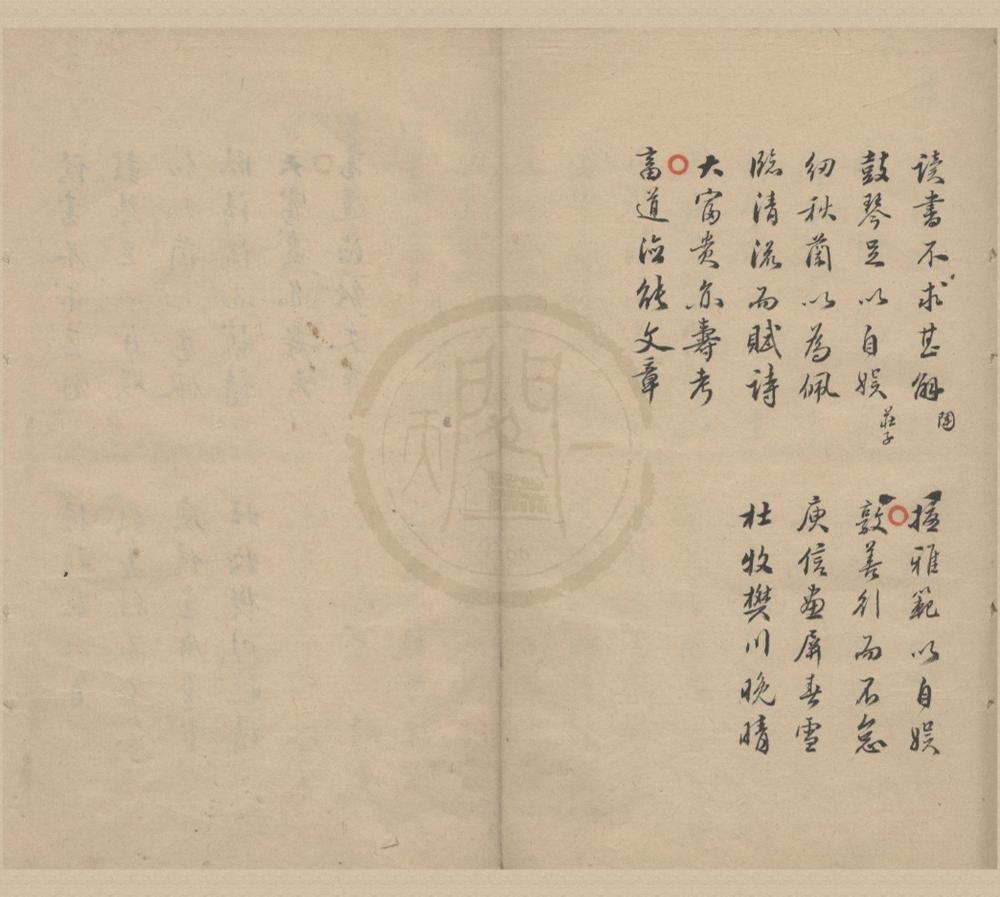 读書不求甚解
陶
鼓琴足以自娱
莊子
纫秋蘭以為佩
臨清流而賦詩
大富贵亦壽考
畜道德能文章
雅範以自娱
敦善行而不怠
庾信畫屏春雪
杜牧樊川晚晴
天一閣